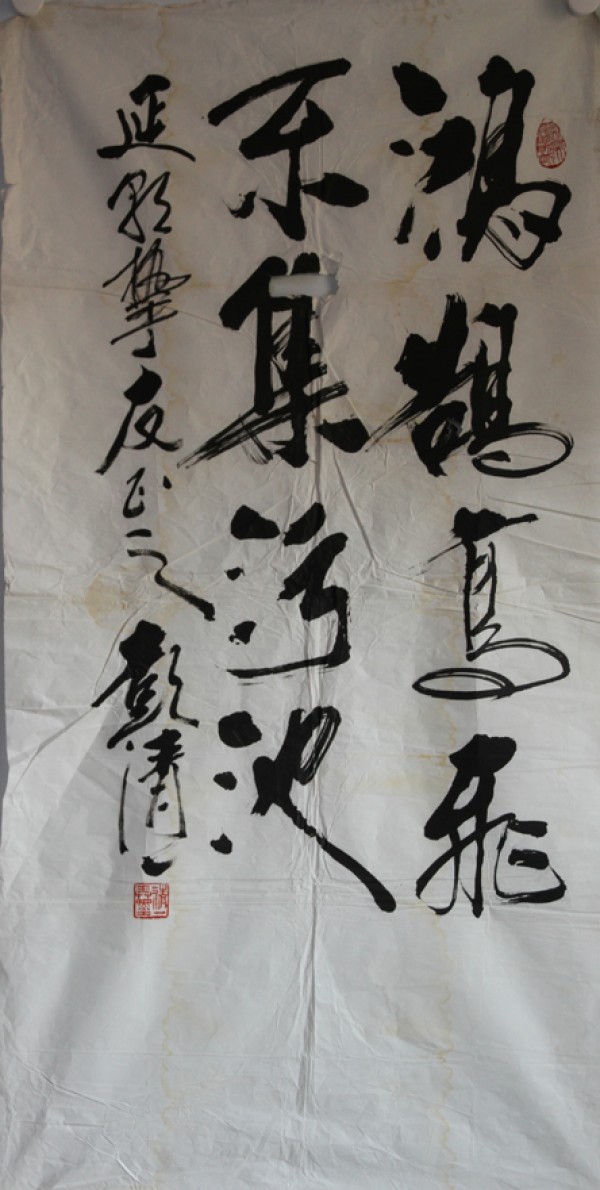 鸿鹄高飞
不集污池
延 挚友正之
彭清一